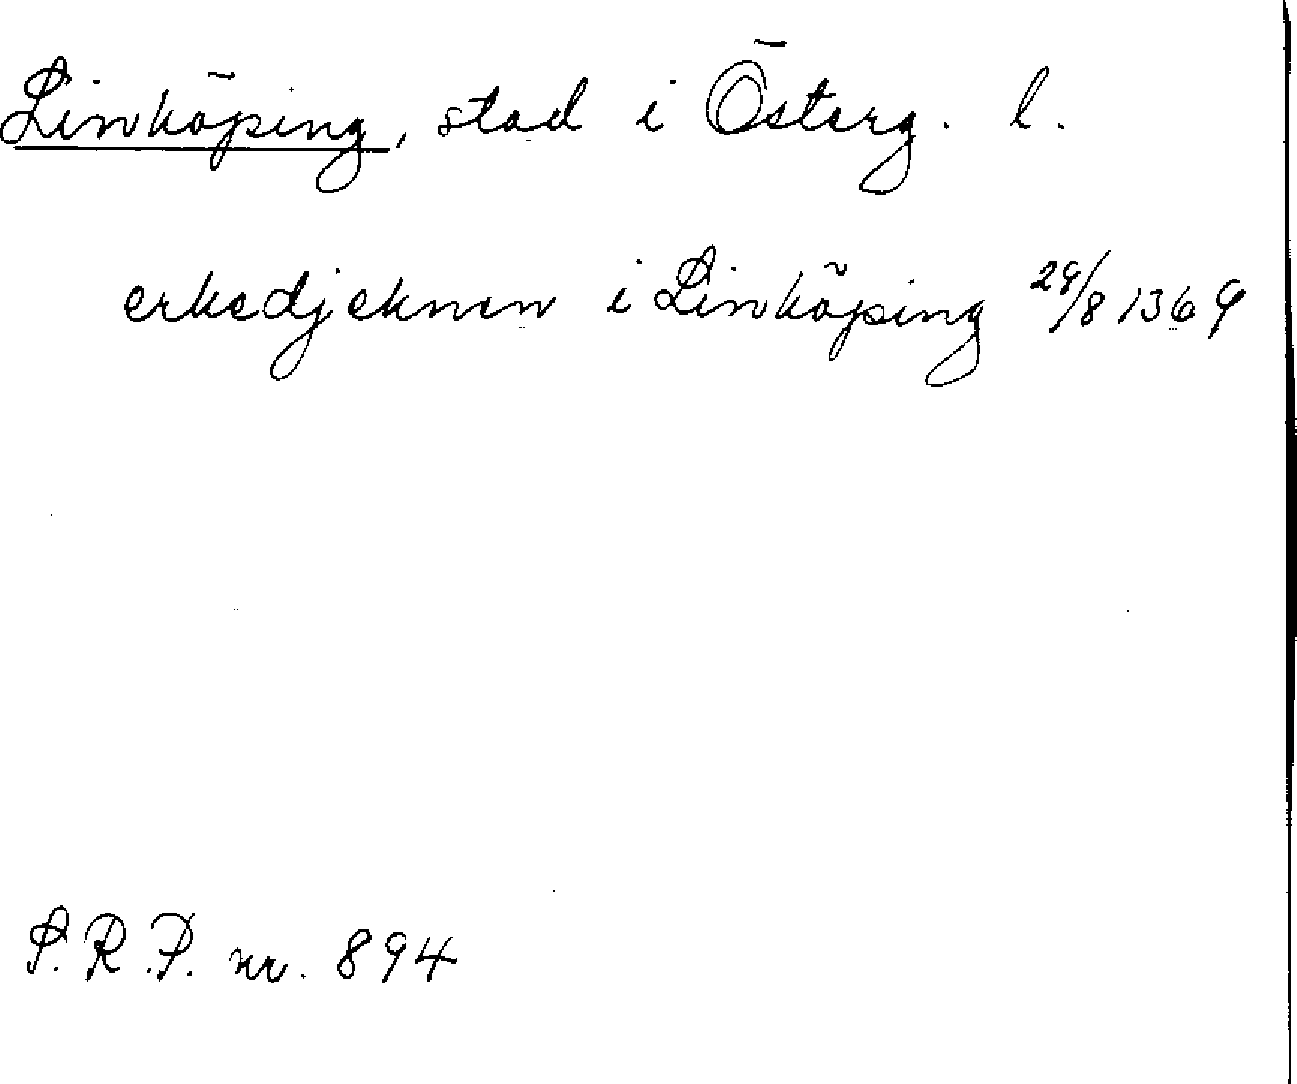 Linköping, stad i Österg. l.
erkedjeknen i Linköping 29/8 1369
S.R.P. nr. 894